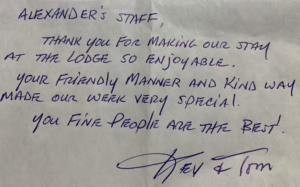 ALEXANDER'S STAFF,
THANK you FOR MAKING OUR STAY
AT THE LODGE SO ENJOYABLE.
your FRIENDLY MANNER AND KIND WAY
MADE OUR WEEK VERY SPECIAL.
you FINE PEOPLE ARE THE BEST!
KEV & Tom